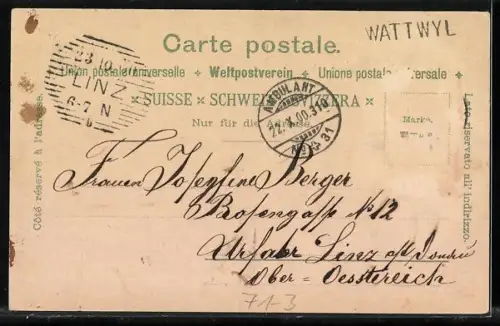 WATTWYL
Carte postale.
Union postale universelle + Weltpostverein + Unione postale universale
SUISSE × SCHWEIZ × SVIZZERA
Nur für die Adresse.
23 10
LINZ
6-7 N
AMBULANT
22.X.00.
No 31
Marke.
Côté réservé à l'adresse.
Lato riservato all' indirizzo.
Frauen Josefine Berger
Rosengasse № 12
Urfahr Linz a/d Donau
Ober = Oesstereich
71-3